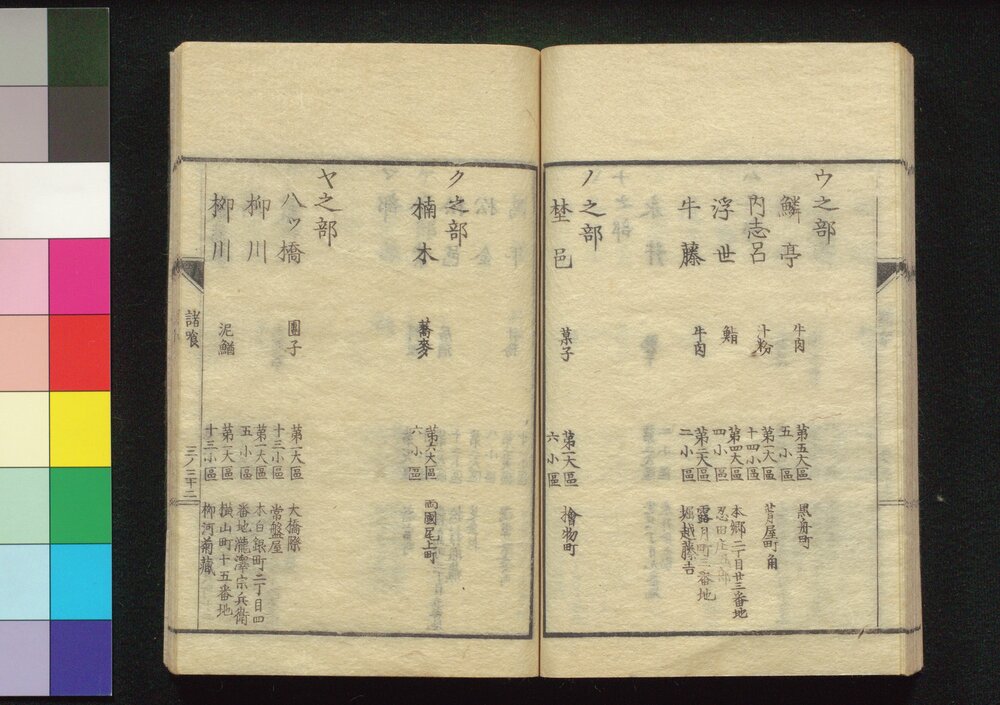 ウ之部
鱗亭 牛肉 第五大區五小區 黒舟町
内志呂 汁粉 第一大區十四小區 葺屋町角
浮世 鮨 第四大區四小區 本郷二丁目廿三番地
牛藤 牛肉 第二大區二小區 露月町二番地 堀越藤吉
ノ之部
埜邑 菓子 第一大區六小區 檜物町
ク之部
楠木 蕎麥 第六大區六小區 両國尾上町
ヤ之部
八ッ橋 團子 第一大區十三小區 大橋際 常盤屋
柳川 第一大區五小區 本白銀町二丁目四番地 瀧澤宗兵衛
柳川 泥鰌 第一大區十三小區 横山町十五番地 柳河菊藏
諸喰
三ノ二十二